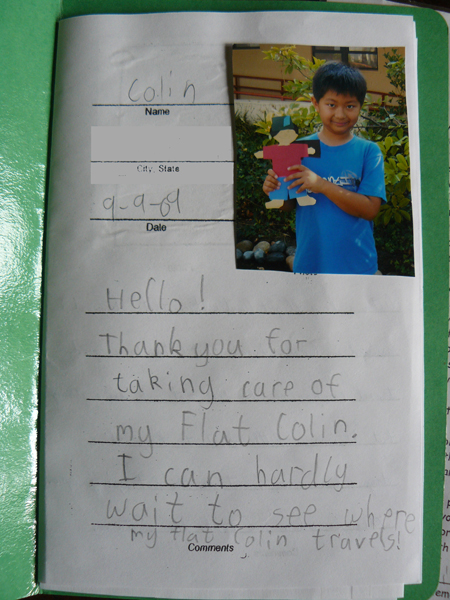 Colin
Name
City, State
9-9-09
Date
Hello!
Thank you for
taking care of
my Flat Colin.
I can hardly
wait to see where
my flat Colin travels!
Comments